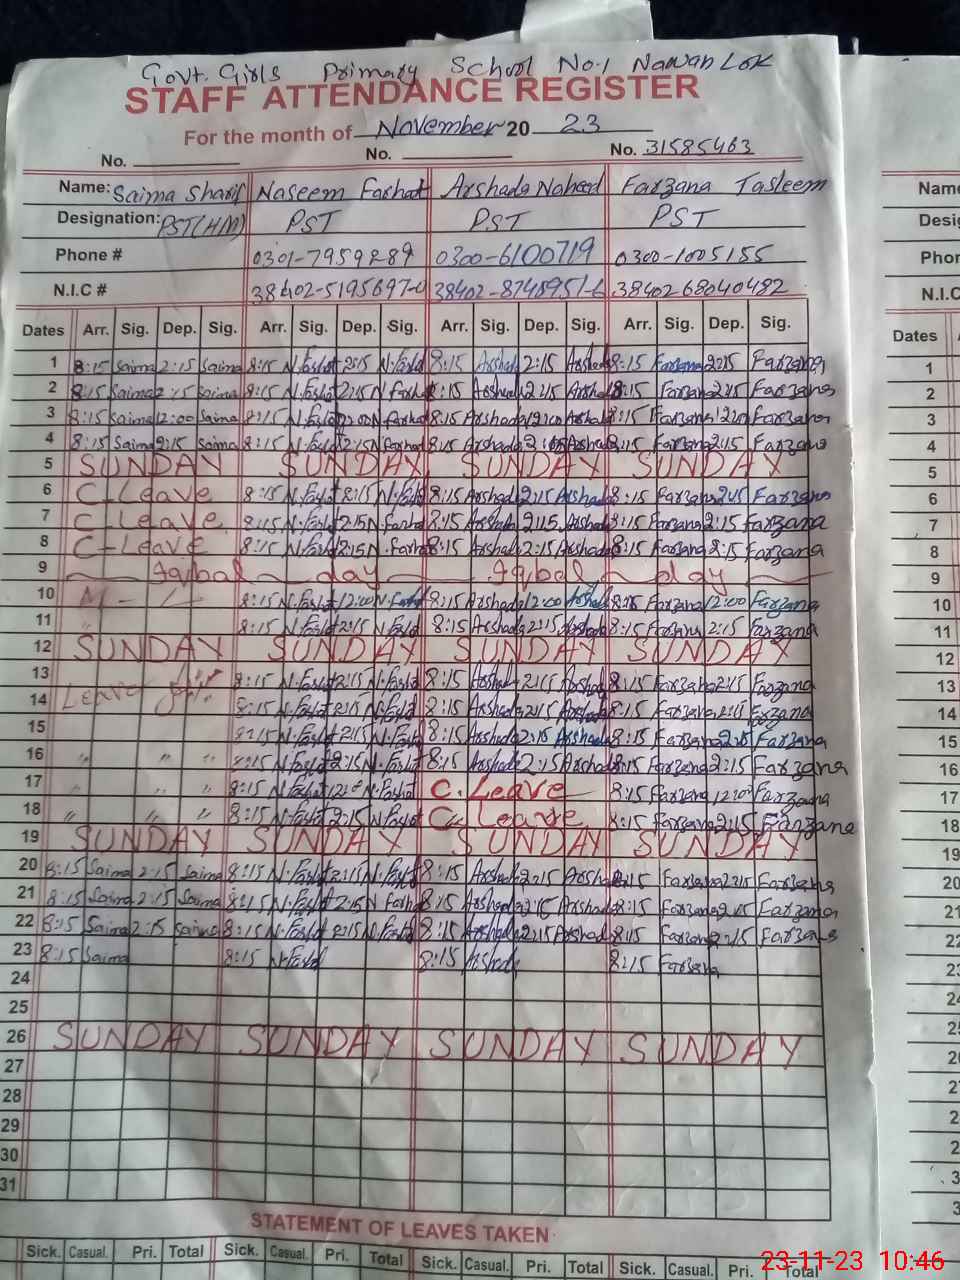 Govt. Girls Primary School No.1 Nawan Lok
STAFF ATTENDANCE REGISTER
For the month of November 20 23
No. No. No. 31585463
Name: Saima Sharif Naseem Farhat Arshada Naheed Farzana Tasleem
Designation: PST(HM) PST PST PST
Phone # 0301-7959289 0300-6100719 0300-1005155
N.I.C # 38402-5195697- 38402-8748951-6 3840268040482
Dates Arr. Sig. Dep. Sig. Arr. Sig. Dep. Sig. Arr. Sig. Dep. Sig. Arr. Sig. Dep. Sig.
1 8:15 Saima 2:15 Saima 8:15 N.Farhat 2:15 N.Farhat 8:15 Arshada 2:15 Arshada 8:15 Farzana 2:15 Farzana
2 8:15 Saima 2:15 Saima 8:15 N.Farhat 2:15 N.Farhat 8:15 Arshada 2:15 Arshada 8:15 Farzana 2:15 Farzana
3 8:15 Saima 12:00 Saima 8:15 N.Farhat 12:00 N.Farhat 8:15 Arshada 12:00 Arshada 8:15 Farzana 12:00 Farzana
4 8:15 Saima 2:15 Saima 8:15 N.Farhat 2:15 N.Farhat 8:15 Arshada 2:15 Arshada 8:15 Farzana 2:15 Farzana
5 SUNDAY SUNDAY SUNDAY SUNDAY
6 C-Leave 8:15 N.Farhat 2:15 N.Farhat 8:15 Arshada 2:15 Arshada 8:15 Farzana 2:15 Farzana
7 C-Leave 8:15 N.Farhat 2:15 N.Farhat 8:15 Arshada 2:15 Arshada 8:15 Farzana 2:15 Farzana
8 C-Leave 8:15 N.Farhat 2:15 N.Farhat 8:15 Arshada 2:15 Arshada 8:15 Farzana 2:15 Farzana
9 Iqbal day Iqbal day
10 8:15 N.Farhat 12:00 N.Farhat 8:15 Arshada 12:00 Arshada 8:15 Farzana 12:00 Farzana
11 8:15 N.Farhat 2:15 N.Farhat 8:15 Arshada 2:15 Arshada 8:15 Farzana 2:15 Farzana
12 SUNDAY SUNDAY SUNDAY SUNDAY
13 8:15 N.Farhat 2:15 N.Farhat 8:15 Arshada 2:15 Arshada 8:15 Farzana 2:15 Farzana
14 Leave 8:15 N.Farhat 2:15 N.Farhat 8:15 Arshada 2:15 Arshada 8:15 Farzana 2:15 Farzana
15 8:15 N.Farhat 2:15 N.Farhat 8:15 Arshada 2:15 Arshada 8:15 Farzana 2:15 Farzana
16 " " " 8:15 N.Farhat 2:15 N.Farhat 8:15 Arshada 2:15 Arshada 8:15 Farzana 2:15 Farzana
17 " " " 8:15 N.Farhat 12:00 N.Farhat C.Leave 8:15 Farzana 12:00 Farzana
18 " " " 8:15 N.Farhat 2:15 N.Farhat C.Leave 8:15 Farzana 2:15 Farzana
19 SUNDAY SUNDAY SUNDAY SUNDAY
20 8:15 Saima 2:15 Saima 8:15 N.Farhat 2:15 N.Farhat 8:15 Arshada 2:15 Arshada 8:15 Farzana 2:15 Farzana
21 8:15 Saima 2:15 Saima 8:15 N.Farhat 2:15 N.Farhat 8:15 Arshada 2:15 Arshada 8:15 Farzana 2:15 Farzana
22 8:15 Saima 2:15 Saima 8:15 N.Farhat 2:15 N.Farhat 8:15 Arshada 2:15 Arshada 8:15 Farzana 2:15 Farzana
23 8:15 Saima 8:15 N.Farhat 8:15 Arshada 8:15 Farzana
24
25
26 SUNDAY SUNDAY SUNDAY SUNDAY
27
28
29
30
31
STATEMENT OF LEAVES TAKEN
Sick. Casual. Pri. Total Sick. Casual. Pri. Total Sick. Casual. Pri. Total Sick. Casual. Pri. Total
23-11-23 10:46
Name
Phon
N.I.C
Dates
1
2
3
4
5
6
7
8
9
10
11
12
13
14
15
16
17
18
19
20
21
22
23